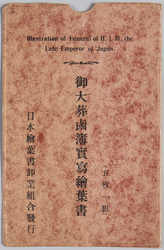 Illustration of Funeral of H. I. M. the
Late Emperor of Japan.
御大葬鹵簿實寫繪葉書
五枚一組
日本繪葉書卸業組合發行